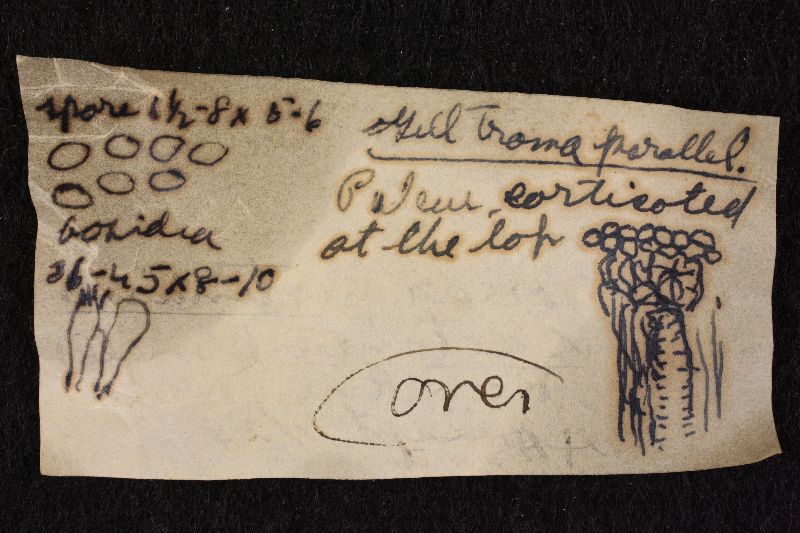 spore 6½-8 x 5-6
basidia
36-45 x 8-10
Gill Trama parallel.
Pileus corticated
at the top
over